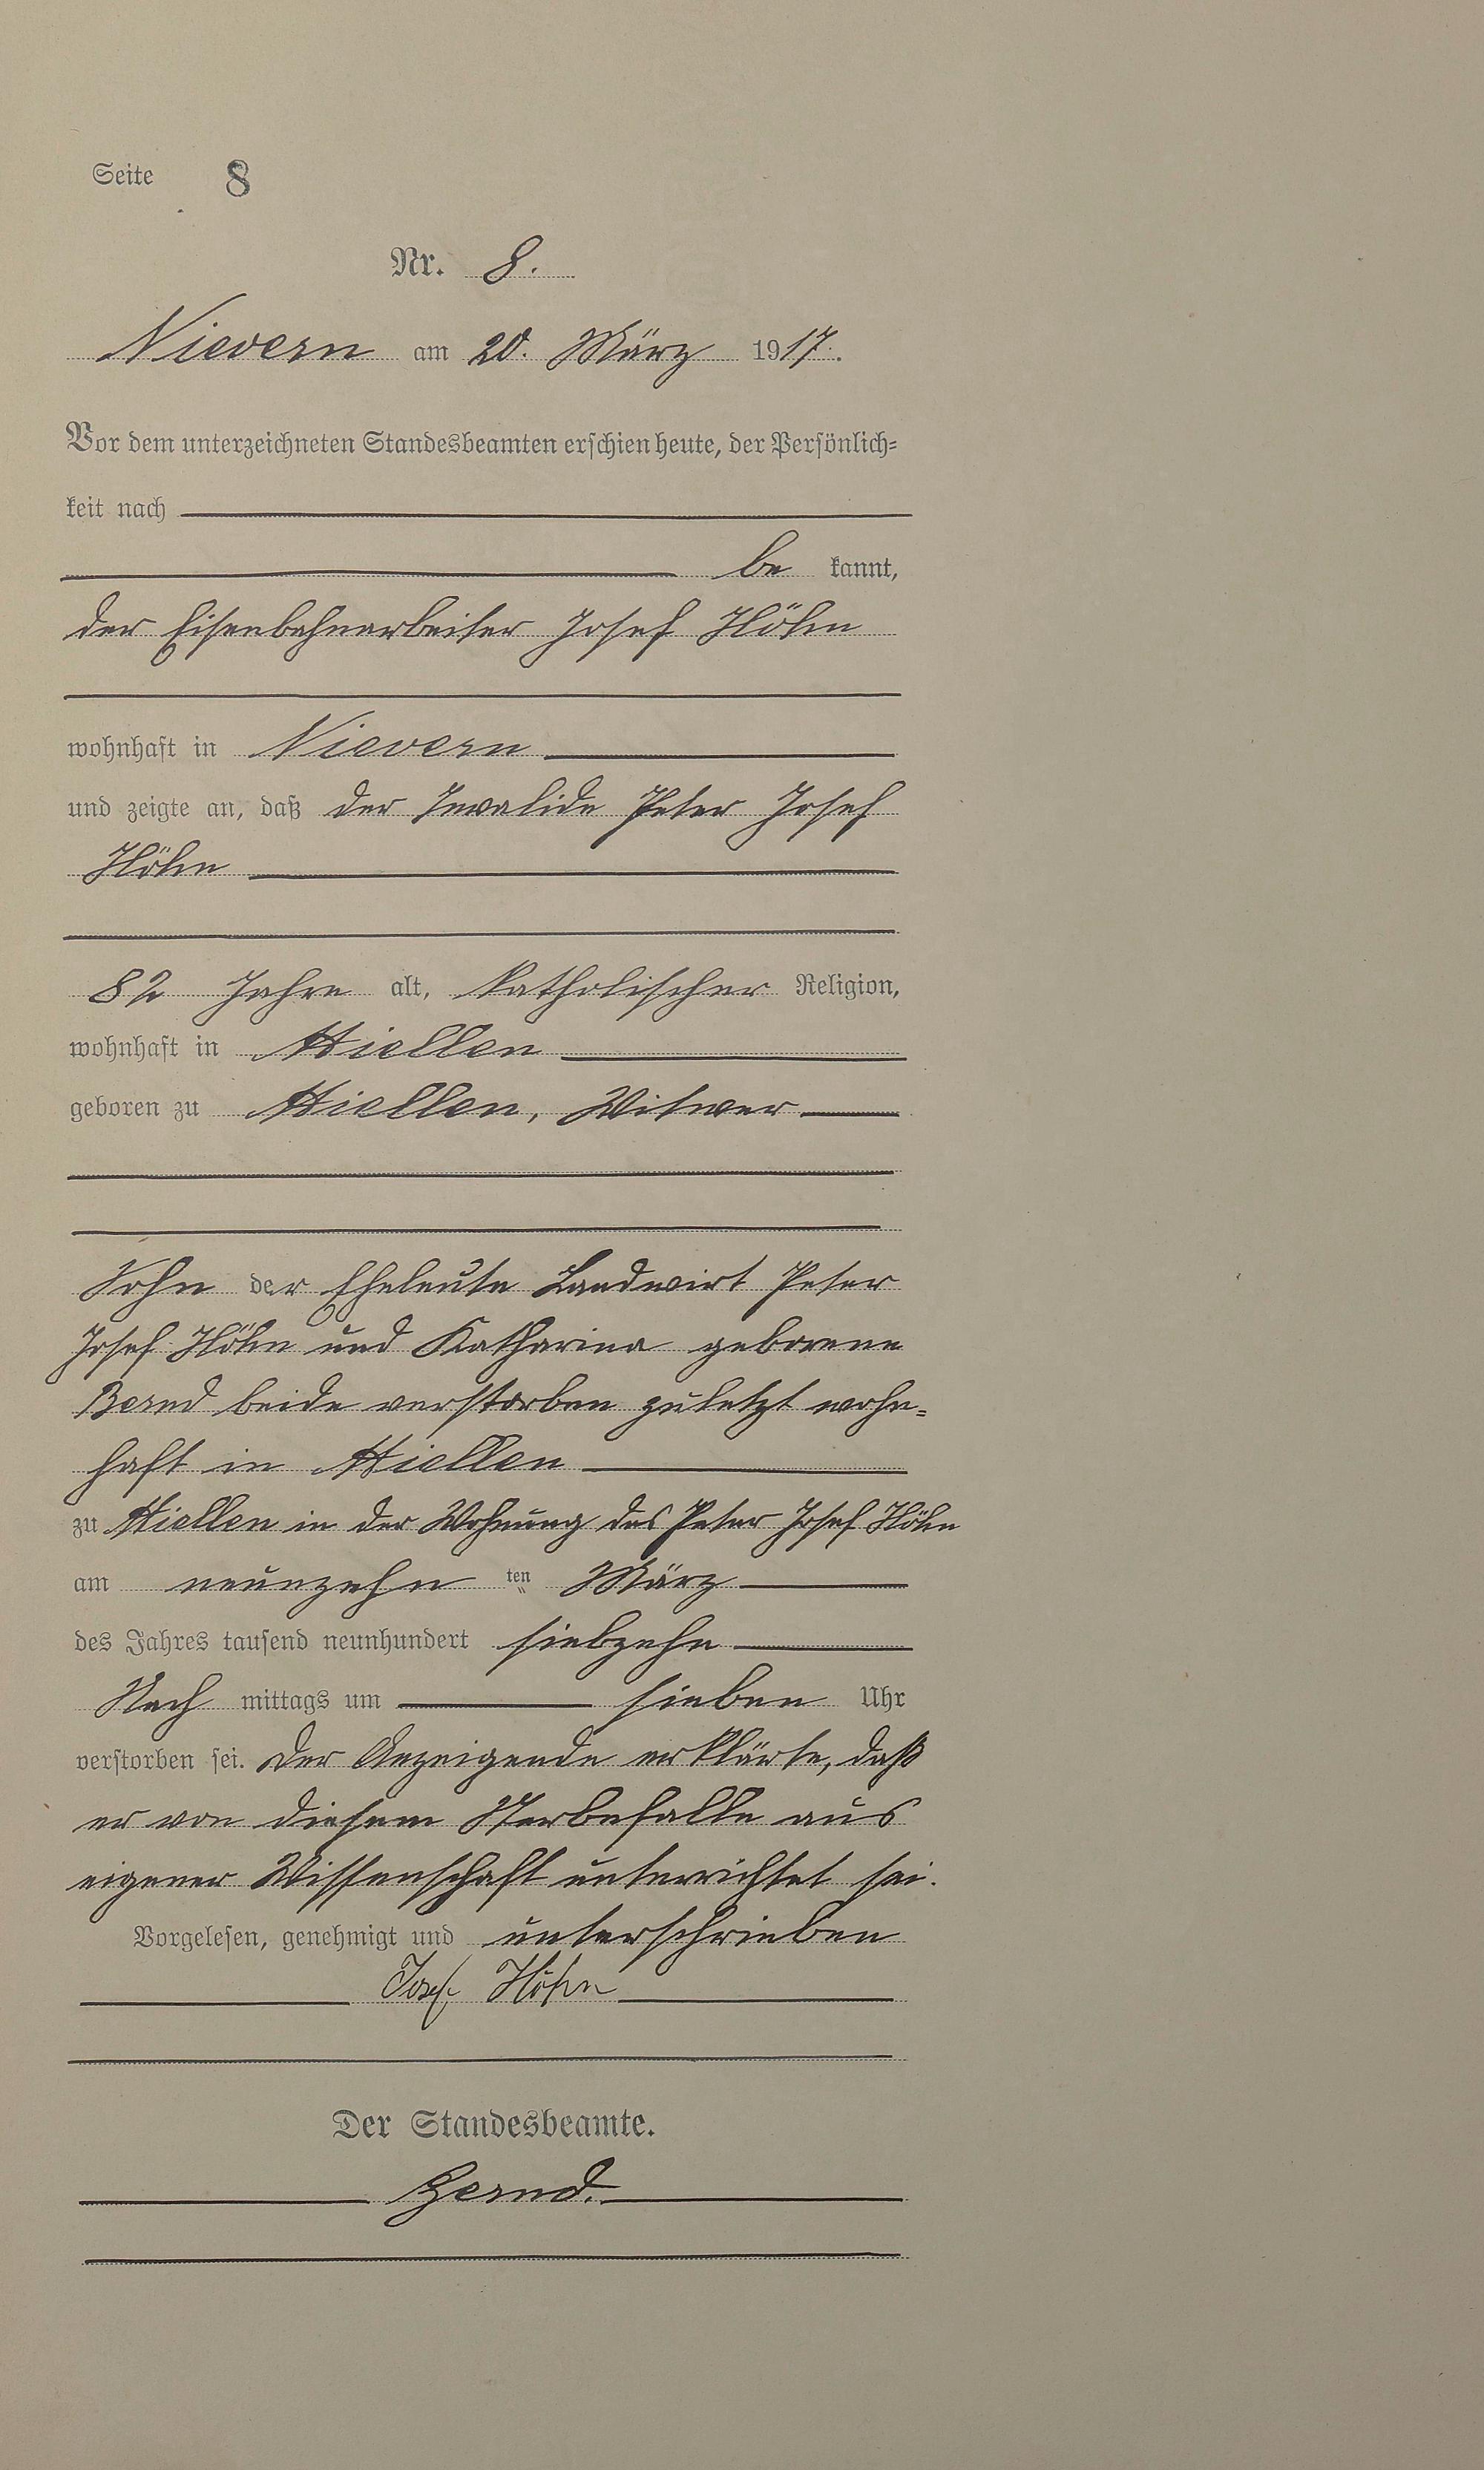 Seite 8
Nr. 8.
Nievern am 20. März 1917.
Vor dem unterzeichneten Standesbeamten erschien heute, der Persönlich=
keit nach
be kannt,
der Eisenbahnarbeiter Josef Höhn
wohnhaft in Nievern
und zeigte an, daß der Invalide Peter Josef
Höhn
82 Jahre alt, katholischer Religion,
wohnhaft in Miellen
geboren zu Miellen, Witwer
Sohn der Eheleute Landwirt Peter
Josef Höhn und Katharina geborene
Bernd beide verstorben zuletzt wohn=
haft in Miellen
zu Miellen in der Wohnung des Peter Josef Höhn
am neunzehn ten März
des Jahres tausend neunhundert siebzehn
Nach mittags um sieben Uhr
verstorben sei. Der Anzeigende erklärte, daß
er von diesem Sterbefalle aus
eigener Wissenschaft unterrichtet sei.
Vorgelesen, genehmigt und unterschrieben
Josef Höhn
Der Standesbeamte.
Bernd.